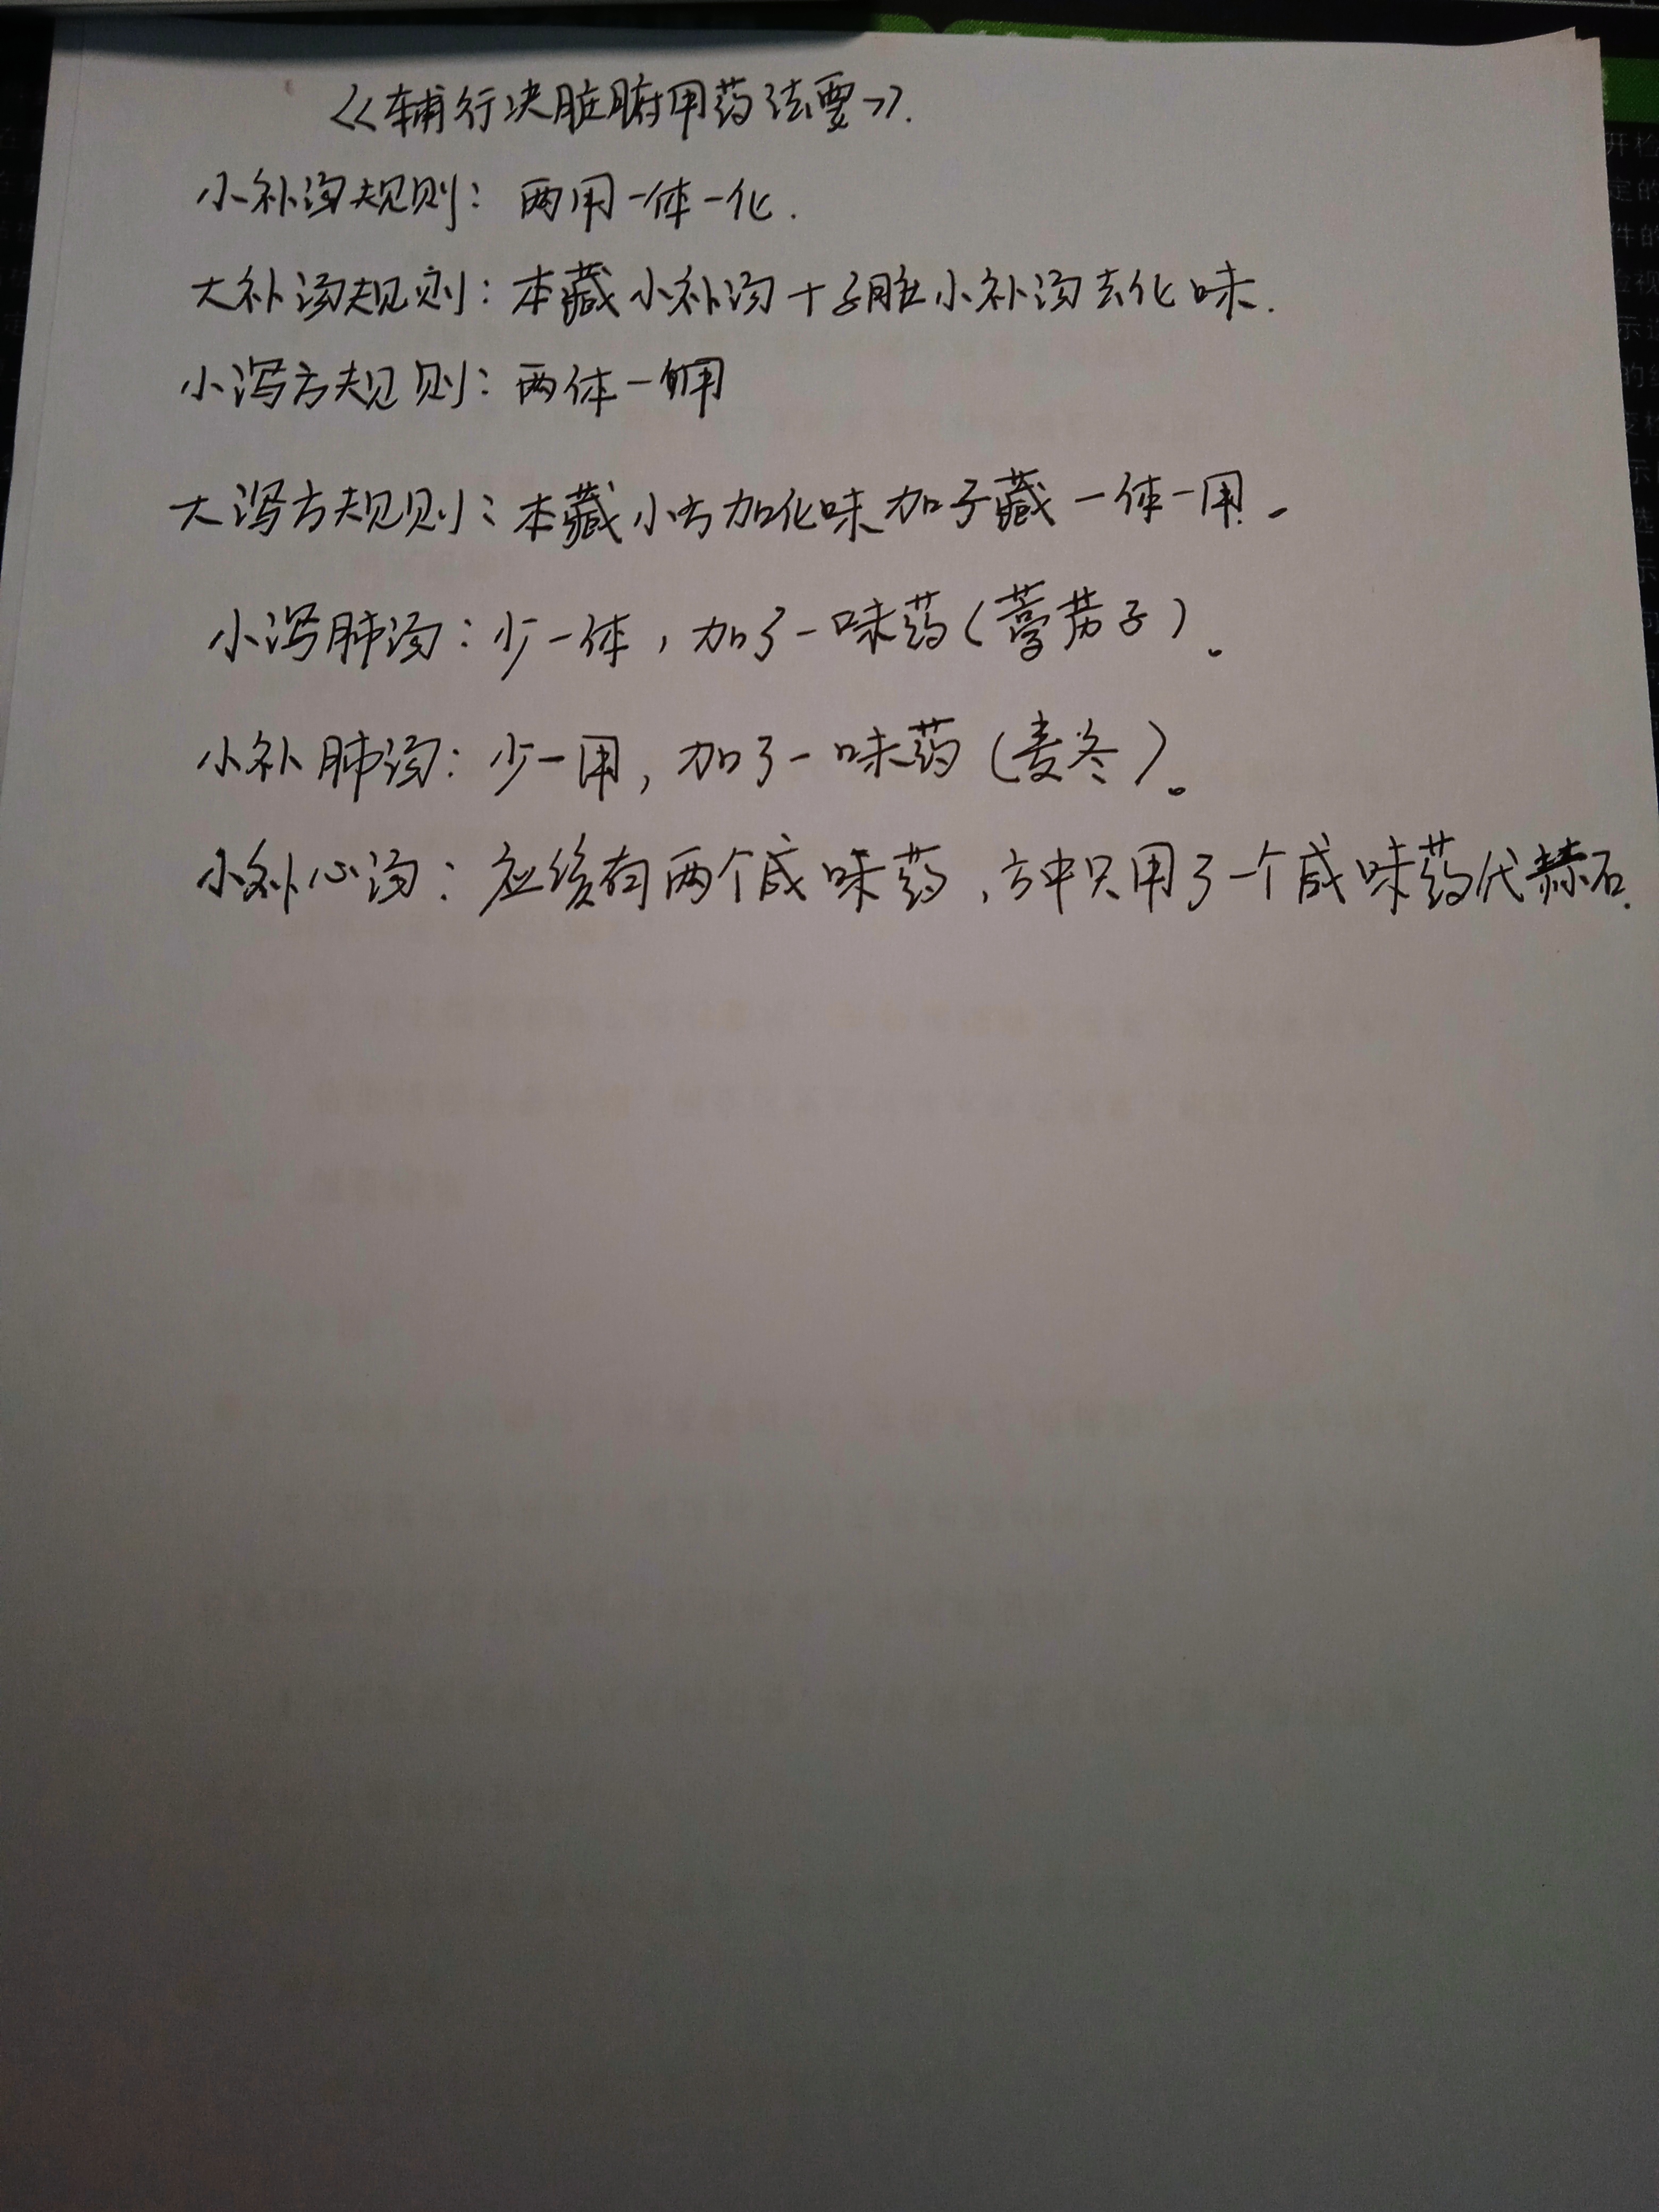 《辅行决脏腑用药法要》.
小补汤规则：两用一体一化.
大补汤规则：本藏小补汤+子脏小补汤去化味.
小泻方规则：两体一用
大泻方规则：本藏小方加化味加子藏一体一用.
小泻肺汤：少一体，加了一味药(葶苈子)。
小补肺汤：少一用，加了一味药(麦冬)。
小补心汤：应该有两个咸味药，方中只用了一个咸味药代赭石.